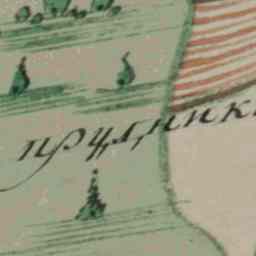 прудники